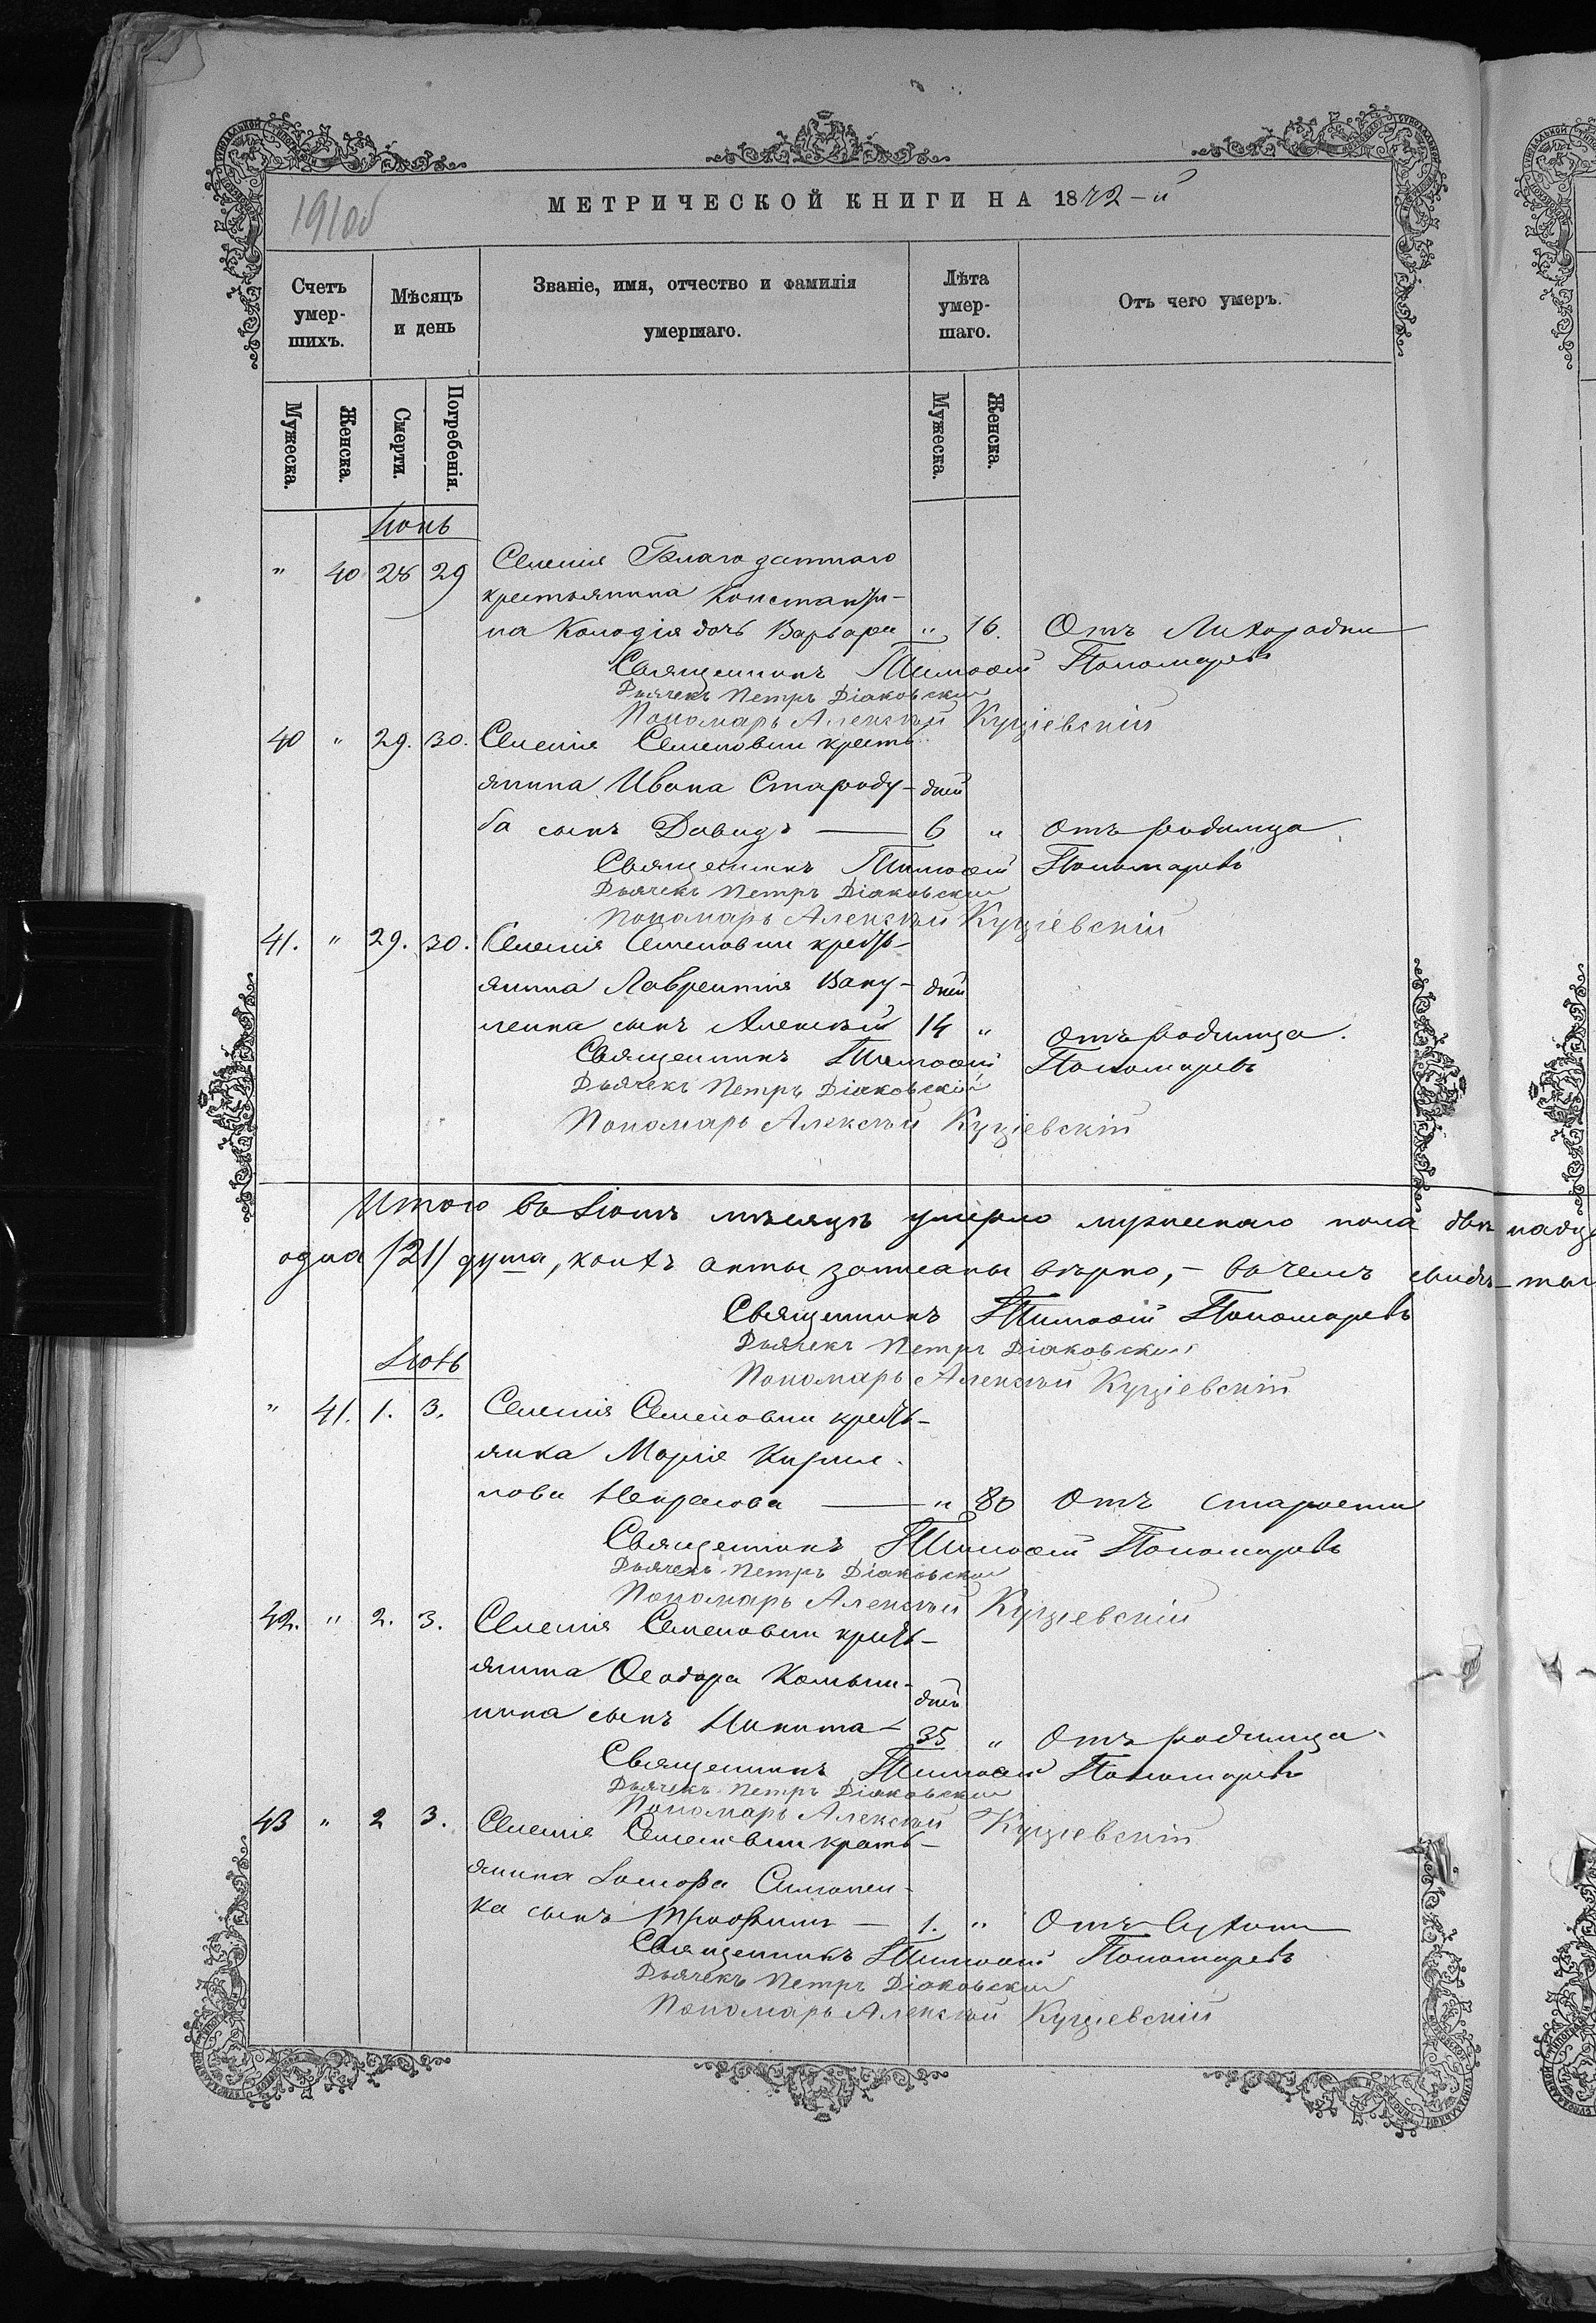 191об
МЕТРИЧЕСКОЙ КНИГИ НА 1872-й
Счетъ умер-шихъ.
Мѣсяцъ и день
Званіе, имя, отчество и фамилія умершаго.
Лѣта умер-шаго.
Отъ чего умеръ.
Мужеска. Женска. Смерти. Погребенія. Мужеска. Женска.
Іюнь
" 40 28 29 Селенія Благодатнаго
крестьянина Константи-
на Колодія дочь Варвара " 16. Отъ Лихорадки
Священникъ Тимоѳей Пономаревъ
Дьячекъ Петръ Діаковскій
Пономарь Алексѣй
40 " 29. 30. Селенія Семеновки кресть-
янина Ивана Староду- дней
ба сынъ Давидъ — 6 " Отъ родимца
Священникъ Тимоѳей Пономаревъ
Дьячекъ Петръ Діаковскій
Пономарь Алексѣй
41. " 29. 30. Селенія Семеновки кресть-
янина Лаврентія Ваку- дней
ленка сынъ Алексѣй 14 " Отъ родимца.
Священникъ Тимоѳей Пономаревъ
Дьячекъ Петръ Діаковскій
Пономарь Алексѣй
Итого въ Іюнѣ мѣсяцѣ умерло мужескаго пола двѣнадц
одна /21/ душа, коихъ акты записаны вѣрно,- въ чемъ свидѣ-тел
Священникъ Тимоѳей Пономаревъ
Дьячекъ Петръ Діаковскій
Пономарь Алексѣй
Іюль
" 41. 1. 3. Селенія Семеновки кресть-
янка Марія Кирил-
лова Некрасова — " 80 Отъ старости
Священникъ Тимоѳей Пономаревъ
Дьячекъ Петръ Діаковскій
Пономарь Алексѣй
42. " 2. 3. Селенія Семеновки кресть-
янина Ѳеодора дней
сынъ Никита - 35 " Отъ родимца
Священникъ Тимоѳей Пономаревъ
Дьячекъ Петръ Діаковскій
Пономарь Алексѣй
43 " 2 3. Селенія Семеновки кресть-
янина Іосифа Симонен-
ка сынъ Трофимъ — 1. " Отъ Сухоти
Священникъ Тимоѳей Пономаревъ
Дьячекъ Петръ Діаковскій
Пономарь Алексѣй